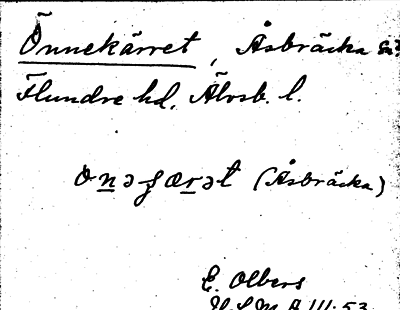 Önnekärret, Åsbräcka sn?
Flundre hd, Älvsb. l.
onəʄærət (Åsbräcka)
E. Olbers